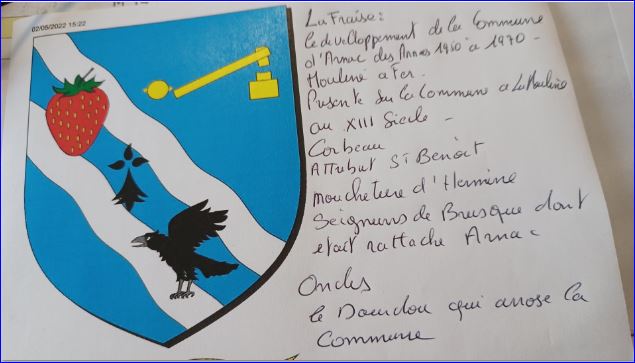 02/05/2022 15:22
La Fraise:
le developpement de la Commune
d'Arnac des Annees 1950 à 1970 -
Mouline a Fer.
Presente sur la Commune a La Mouline
au XIII Siecle -
Corbeau
Attribut St Benoit
moucheture d'Hermine
Seigneurs de Brusque dont
etait rattache Arnac
Ondes
le Dourdou qui arrose la
Commune